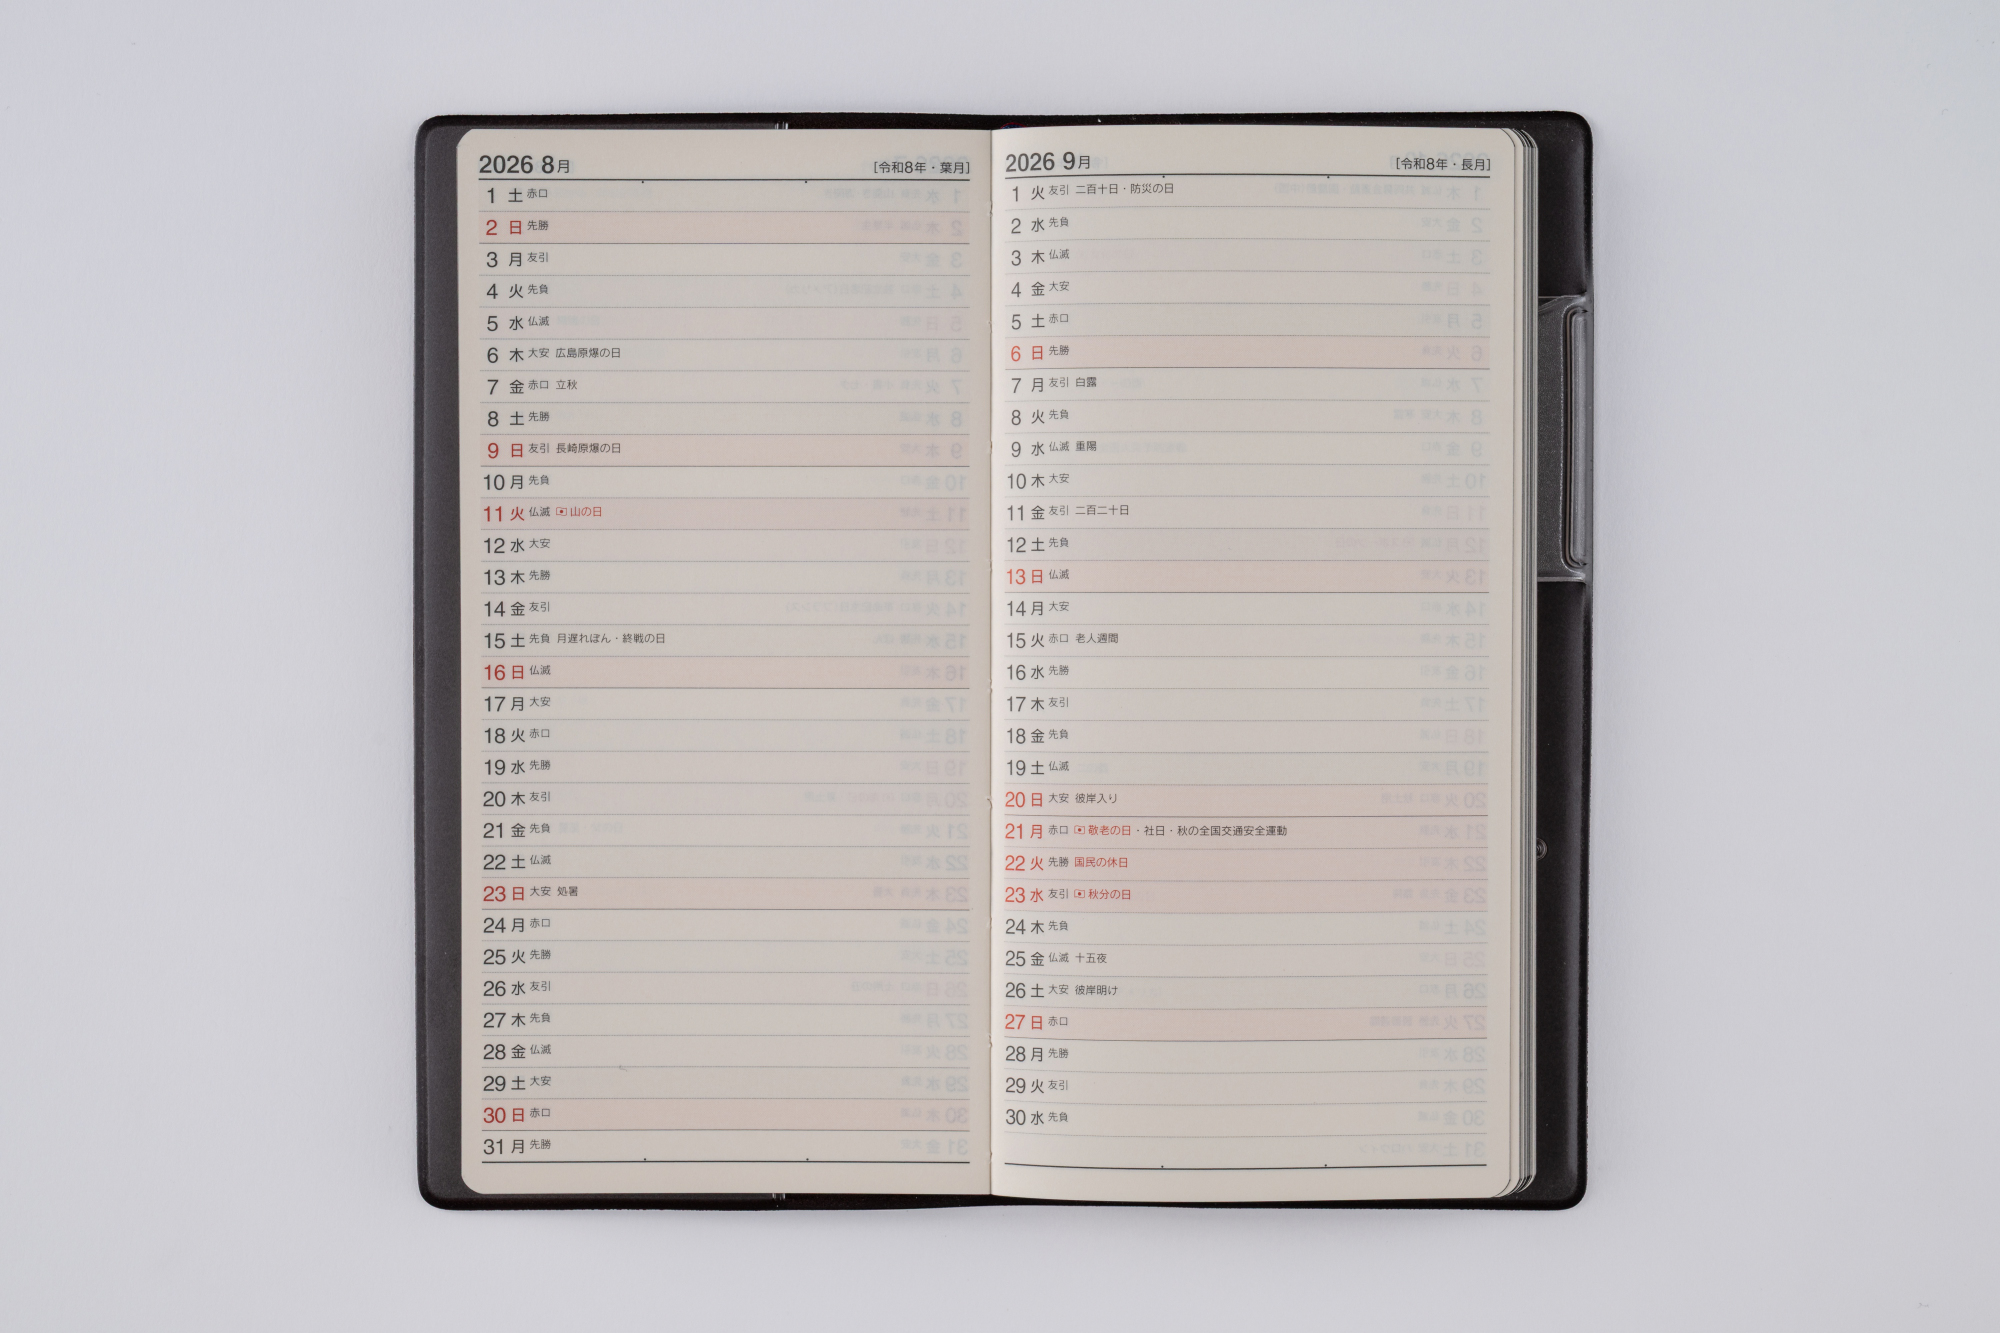 2026 8月 [令和8年・葉月]
1 土 赤口
2 日 先勝
3 月 友引
4 火 先負
5 水 仏滅
6 木 大安 広島原爆の日
7 金 赤口 立秋
8 土 先勝
9 日 友引 長崎原爆の日
10 月 先負
11 火 仏滅 山の日
12 水 大安
13 木 先勝
14 金 友引
15 土 先負 月遅れぼん・終戦の日
16 日 仏滅
17 月 大安
18 火 赤口
19 水 先勝
20 木 友引
21 金 先負
22 土 仏滅
23 日 大安 処暑
24 月 赤口
25 火 先勝
26 水 友引
27 木 先負
28 金 仏滅
29 土 大安
30 日 赤口
31 月 先勝
2026 9月 [令和8年・長月]
1 火 友引 二百十日・防災の日
2 水 先負
3 木 仏滅
4 金 大安
5 土 赤口
6 日 先勝
7 月 友引 白露
8 火 先負
9 水 仏滅 重陽
10 木 大安
11 金 友引 二百二十日
12 土 先負
13 日 仏滅
14 月 大安
15 火 赤口 老人週間
16 水 先勝
17 木 友引
18 金 先負
19 土 仏滅
20 日 大安 彼岸入り
21 月 赤口 敬老の日・社日・秋の全国交通安全運動
22 火 先勝 国民の休日
23 水 友引 秋分の日
24 木 先負
25 金 仏滅 十五夜
26 土 大安 彼岸明け
27 日 赤口
28 月 先勝
29 火 友引
30 水 先負